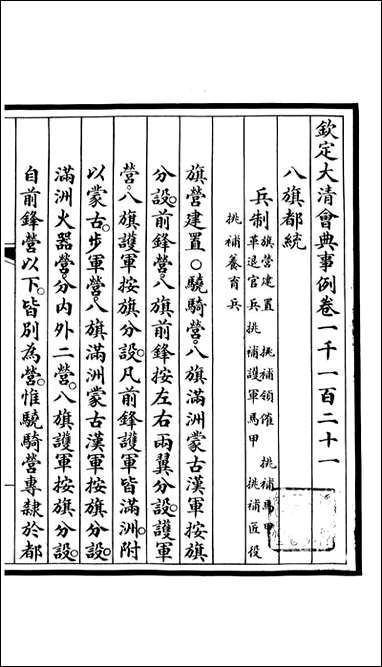 欽定大清會典事例卷一千一百二十一
八旗都統
兵制旗營建置 挑補領催 挑補馬甲
革退官兵挑補護軍馬甲 挑補匠役
挑補養育兵
旗營建置○驍騎營。八旗滿洲蒙古漢軍按旗
分設。前鋒營。八旗前鋒按左右兩翼分設。護軍
營。八旗護軍按旗分設。凡前鋒護軍皆滿洲附
以蒙古。步軍營。八旗滿洲蒙古漢軍按旗分設。
滿洲火器營。分內外二營。八旗護軍按旗分設。
自前鋒營以下。皆別為營。惟驍騎營專隸於都